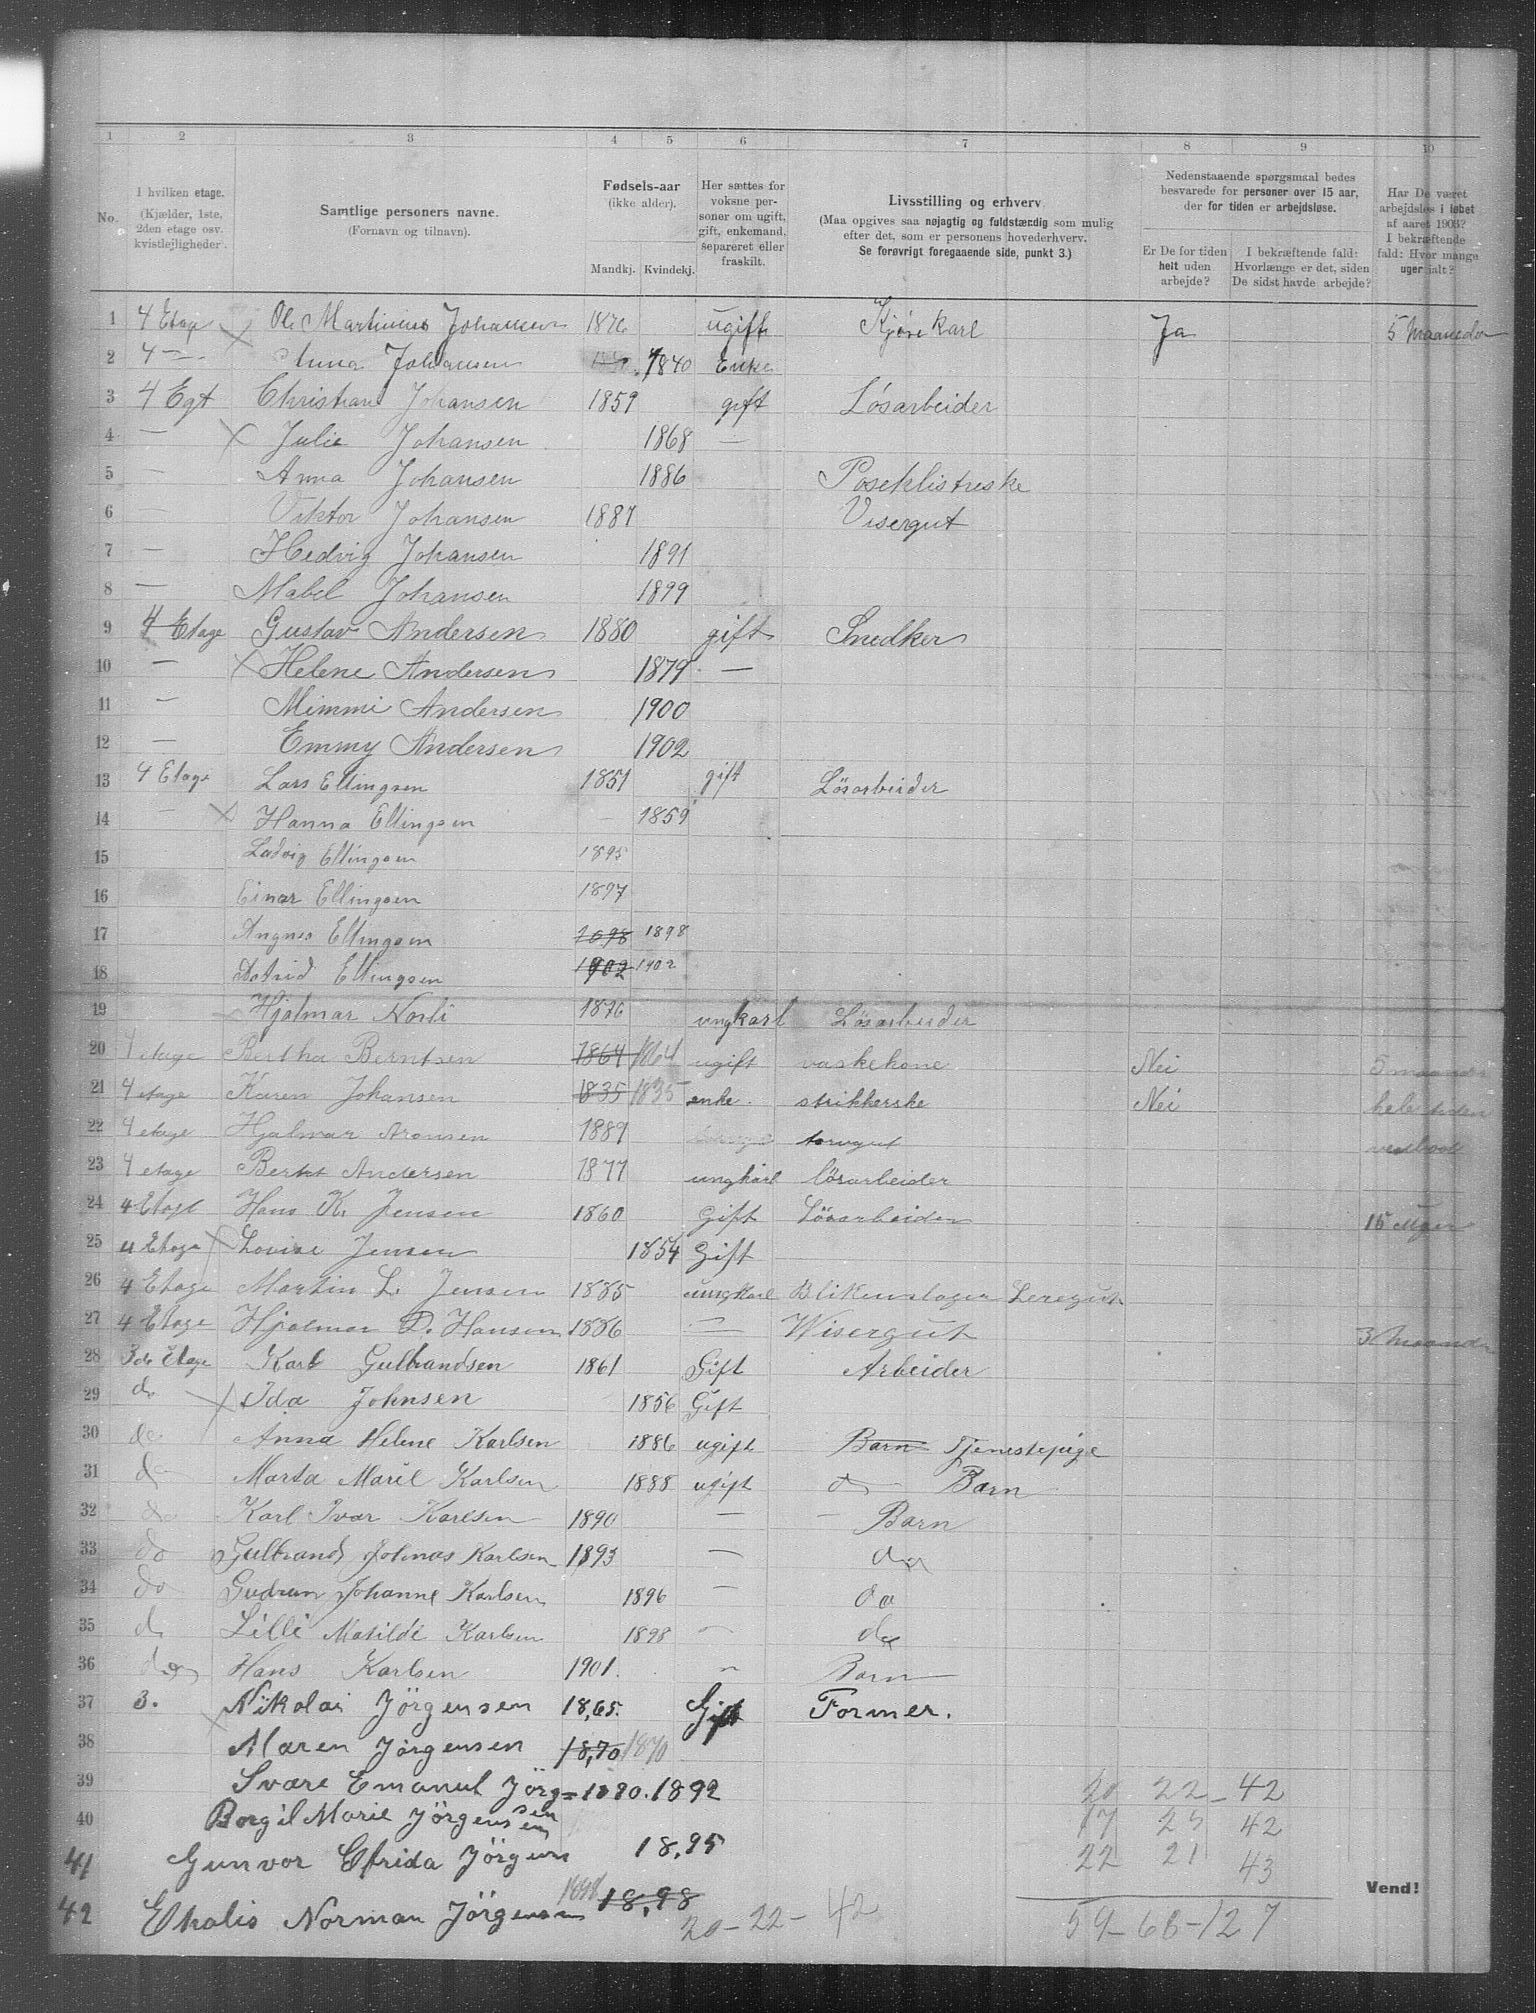 1 2 3 4 5 6 7 8 9 10
No.
I hvilken etage.
(Kjælder, 1ste, 2den etage osv. kvistlejligheder).
Samtlige personers navne.
(Fornavn og tilnavn).
Fødsels-aar
(ikke alder).
Mandkj. Kvindekj.
Her sættes for voksne personer om ugift, gift, enkemand, separeret eller fraskilt.
Livsstilling og erhverv.
(Maa opgives saa nøjagtig og fuldstændig som mulig
efter det, som er personens hovederhverv.
Se forøvrigt foregaaende side, punkt 3.)
Nedenstaaende spørgsmaal bedes
besvarede for personer over 15 aar,
der for tiden er arbejdsløse.
Er De for tiden helt uden arbejde?
I bekræftende fald: Hvorlænge er det, siden De sidst havde arbejde?
Har De været arbejdsløs i løbet af aaret 1903? I bekræftende fald: Hvor mange uger ialt?
1 4 Etage Ole Martinius Johansen 1876 ugift Kjørekarl Ja 5 Maaneder
2 4 — Anna Johansen 1840 Enke
3 4 Egt Christian Johansen 1859 gift Løsarbeider
4 — Julie Johansen 1868 —
5 — Anna Johansen 1886 Poseklistreske
6 Viktor Johansen 1887 Visergut
7 — Hedvig Johansen 1891
8 — Mabel Johansen 1899
9 4 Etage Gustav Andersen 1880 gift Snedker
10 — Helene Andersen 1879 —
11 — Mimmi Andersen 1900
12 — Emmy Andersen 1902
13 4 Etage Lars Ellingsen 1851 gift Lösarbeider
14 — Hanna Ellingsen 1859
15 Ludvig Ellingsen 1895
16 Einar Ellingsen 1897
17 Angnes Ellingsen 1898 1898
18 Astrid Ellingsen 1902 1902
19 Hjalmar Norli 1876 ungkarl Lösarbeider
20 4 etage Bertha Berntsen 1864 1864 ugift vaskekone Nei 5 maaneder
21 4 etage Karen Johansen 1835 1835 enke strikkerske Nei hele tiden
22 4 etage Hjalmar Aronsen 1889 torvgut
23 4 etage Andersen 1877 ungkarl lösarbeider
24 4 Etage Hans K. Jensen 1860 Gift Lösarbeider 15 Uger
25 4 Etage Lovise Jensen 1854 Gift
26 4 Etage Martin L. Jensen 1885 ungkarl Blikenslager Leregut
27 4 Etage Hjalmar D. Hansen 1886 — Wisergut 3 Maaneder
28 3de Etage Karl Gulbrandsen 1861 Gift Arbeider
29 do Ida Johnsen 1856 Gift
30 do Anna Helene Karlsen 1886 ugift Barn Tjenestepige
31 do Marta Marie Karlsen 1888 ugift do Barn
32 do Karl Ivar Karlsen 1890 — Barn
33 do Gulbrand Johnas Karlsen 1893 — do
34 do Gudrun Johanne Karlsen 1896 — do
35 do Lilli Matilde Karlsen 1898 — do
36 do Hans Karlsen 1901. — Barn
37 3. Nikolai Jörgensen 18,65. Gift Former.
38 Maren Jörgensen 18,70 1870
39 Svare Emanuel Jörg= 1890. 1892
40 Borgil Marie Jörgensen
41 Gunvor Elfrida Jörgen 18,95
42 Ehalis Norman Jörgensen 1898 18,98
20 22 - 42
17 25 42
22 21 43
59 - 68 - 127
20 - 22 - 42
Vend!